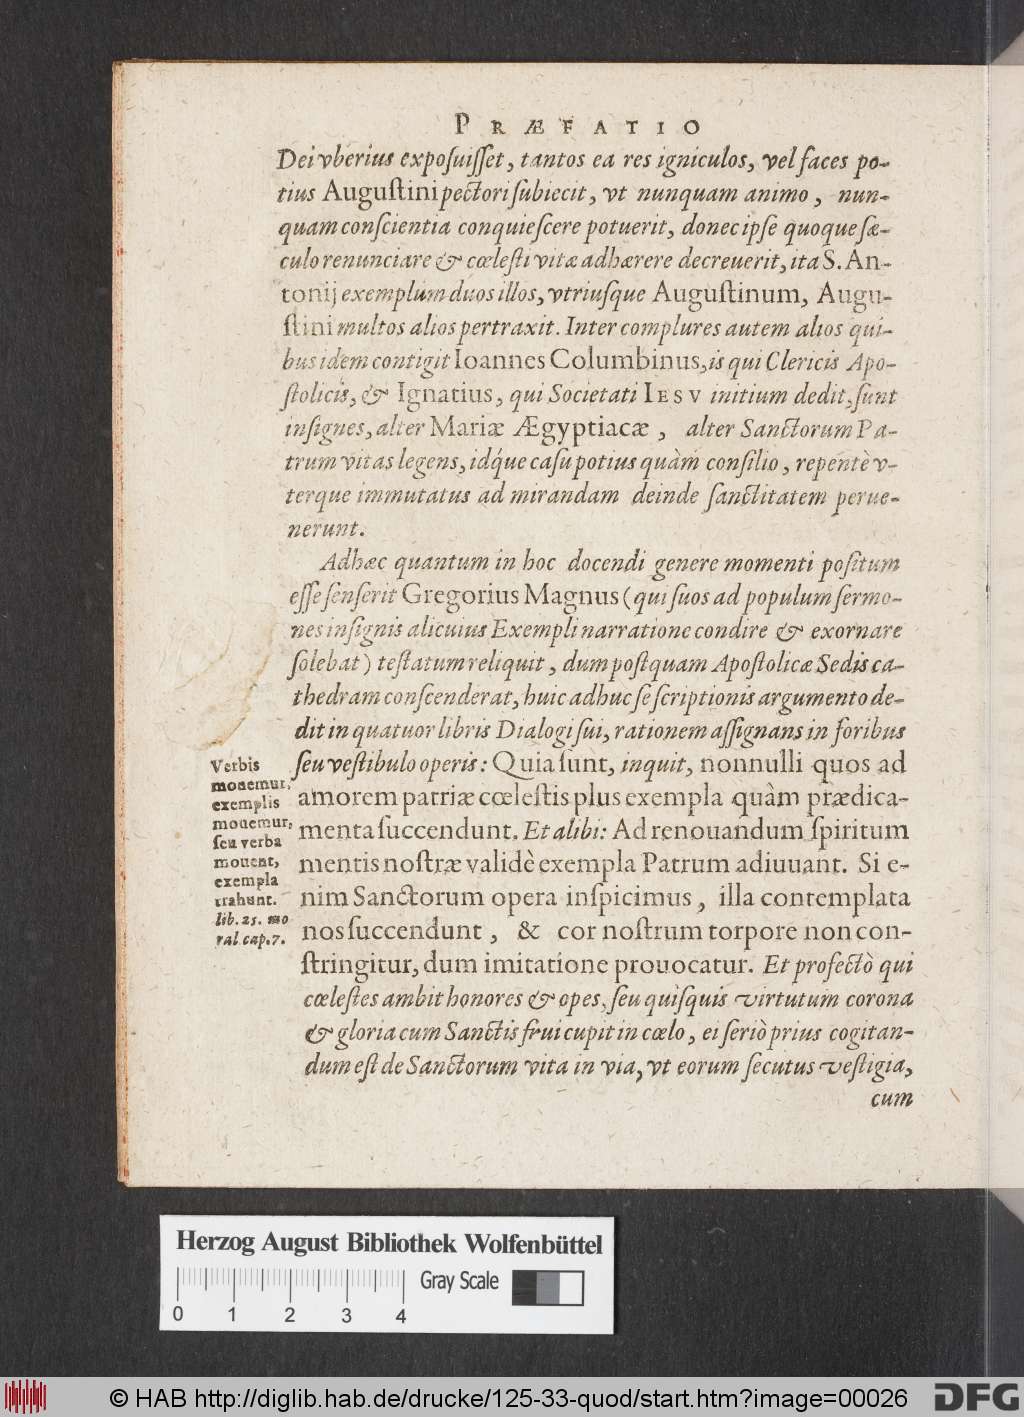 PRÆFATIO
Dei vberius exposuisset, tantos ea res igniculos, vel faces po-
tius Augustini pectori subiecit, vt nunquam animo, nun-
quam conscientia conquiescere potuerit, donec ipse quoque sæ-
culo renunciare & cœlesti vitæ adhærere decreuerit, ita S. An-
tonij exemplum duos illos, vtriusque Augustinum, Augu-
stini multos alios pertraxit. Inter complures autem alios qui-
bus idem contigit Ioannes Columbinus, is qui Clericis Apo-
stolicis, & Ignatius, qui Societati IESV initium dedit, sunt
insignes, alter Mariæ Ægyptiacæ, alter Sanctorum Pa-
trum vitas legens, idq́ue casu potius quàm consilio, repentè v-
terque immutatus ad mirandam deinde sanctitatem perue-
nerunt.
Adhæc quantum in hoc docendi genere momenti positum
esse senserit Gregorius Magnus (qui suos ad populum sermo-
nes insignis alicuius Exempli narratione condire & exornare
solebat) testatum reliquit, dum postquam Apostolicæ Sedis ca-
thedram conscenderat, huic adhuc se scriptionis argumento de-
dit in quatuor libris Dialogi sui, rationem assignans in foribus
seu vestibulo operis: Quia sunt, inquit, nonnulli quos ad
amorem patriæ cœlestis plus exempla quàm prædica-
menta succendunt. Et alibi: Ad renouandum spiritum
mentis nostræ validè exempla Patrum adiuuant. Si e-
nim Sanctorum opera inspicimus, illa contemplata
nos succendunt, & cor nostrum torpore non con-
stringitur, dum imitatione prouocatur. Et profectò qui
cœlestes ambit honores & opes, seu quisquis virtutum corona
& gloria cum Sanctis frui cupit in cœlo, ei seriò prius cogitan-
dum est de Sanctorum vita in via, vt eorum secutus vestigia,
cum
Verbis
monemur,
exemplis
mouemur,
seu verba
mouent,
exempla
trahunt.
lib. 25. mo
ral cap. 7.
Herzog August Bibliothek Wolfenbüttel
Gray Scale
0 1 2 3 4
© HAB http://diglib.hab.de/drucke/125-33-quod/start.htm?image=00026
DFG